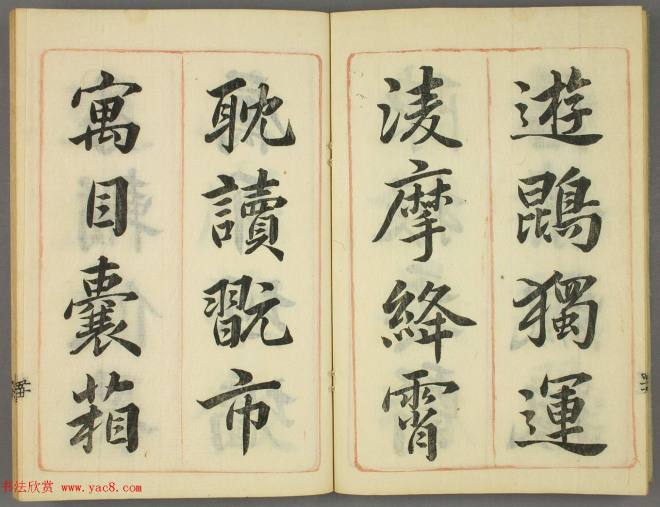 遊鵾獨運
淩摩絳霄
耽讀翫市
寓目囊箱
书法欣赏 www.yac8.com